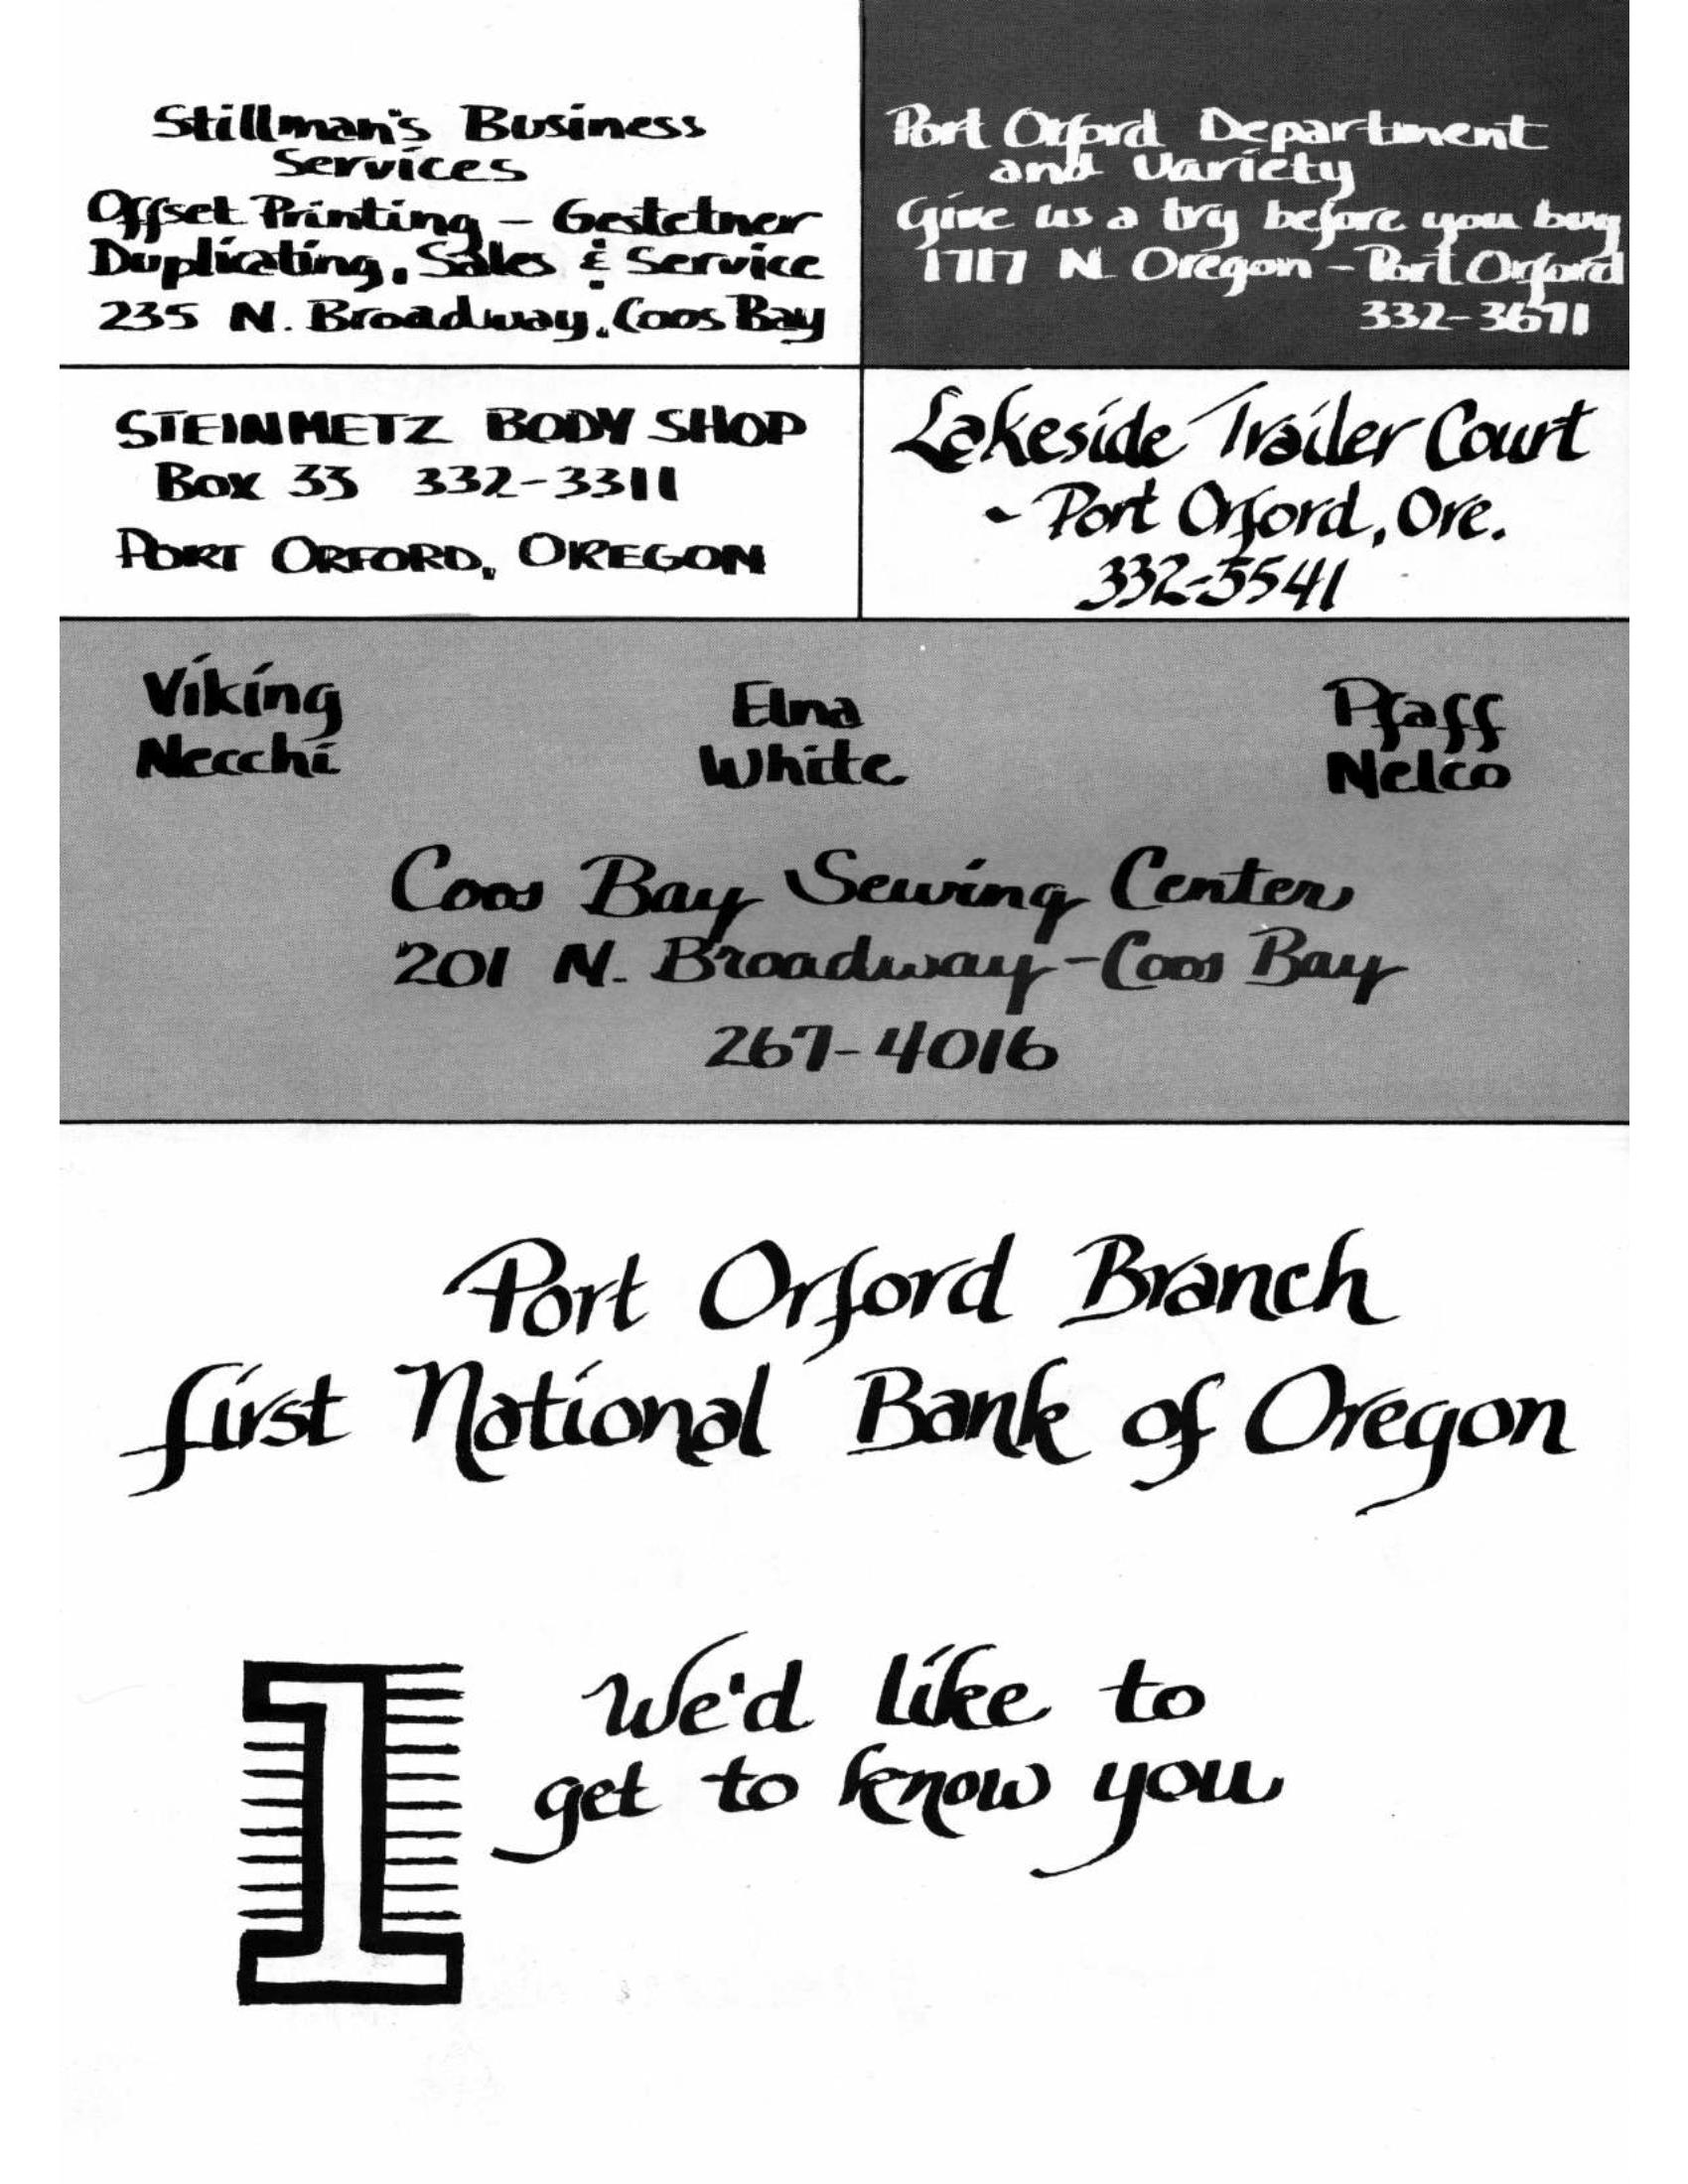 Stillman's Business
Services
Offset Printing - Gestetner
Duplicating, Sales & Service
235 N. Broadway, Coos Bay
Port Orford Department
and Variety
Give us a try before you buy
1717 N Oregon - Port Orford
332-3671
STEINMETZ BODY SHOP
Box 33 332-3311
PORT ORFORD, OREGON
Lakeside Trailer Court
- Port Orford, Ore.
332-5541
Viking
Necchi
Elna
White
Pfaff
Nelco
Coos Bay Sewing Center
201 N. Broadway - Coos Bay
267-4016
Port Orford Branch
first National Bank of Oregon
1
We'd like to
get to know you